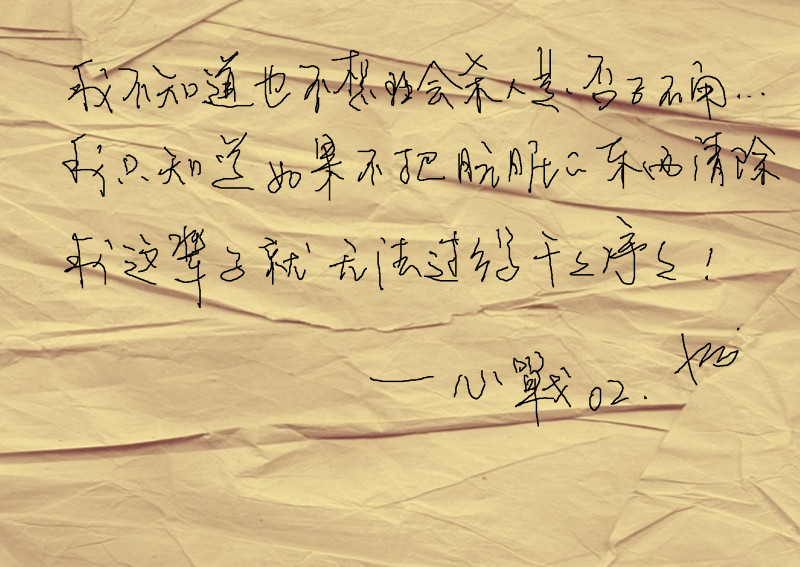 我不知道也不想理会杀人是不是否正确…
我只知道如果不把肮脏的东西清除
我这辈子就无法过得干干净净!
——心戰02.